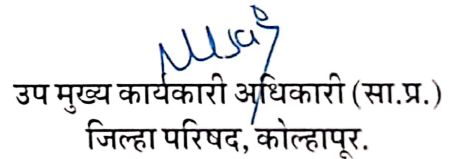 उप मुख्य कार्यकारी अधिकारी (सा.प्र.)
जिल्हा परिषद, कोल्हापूर.